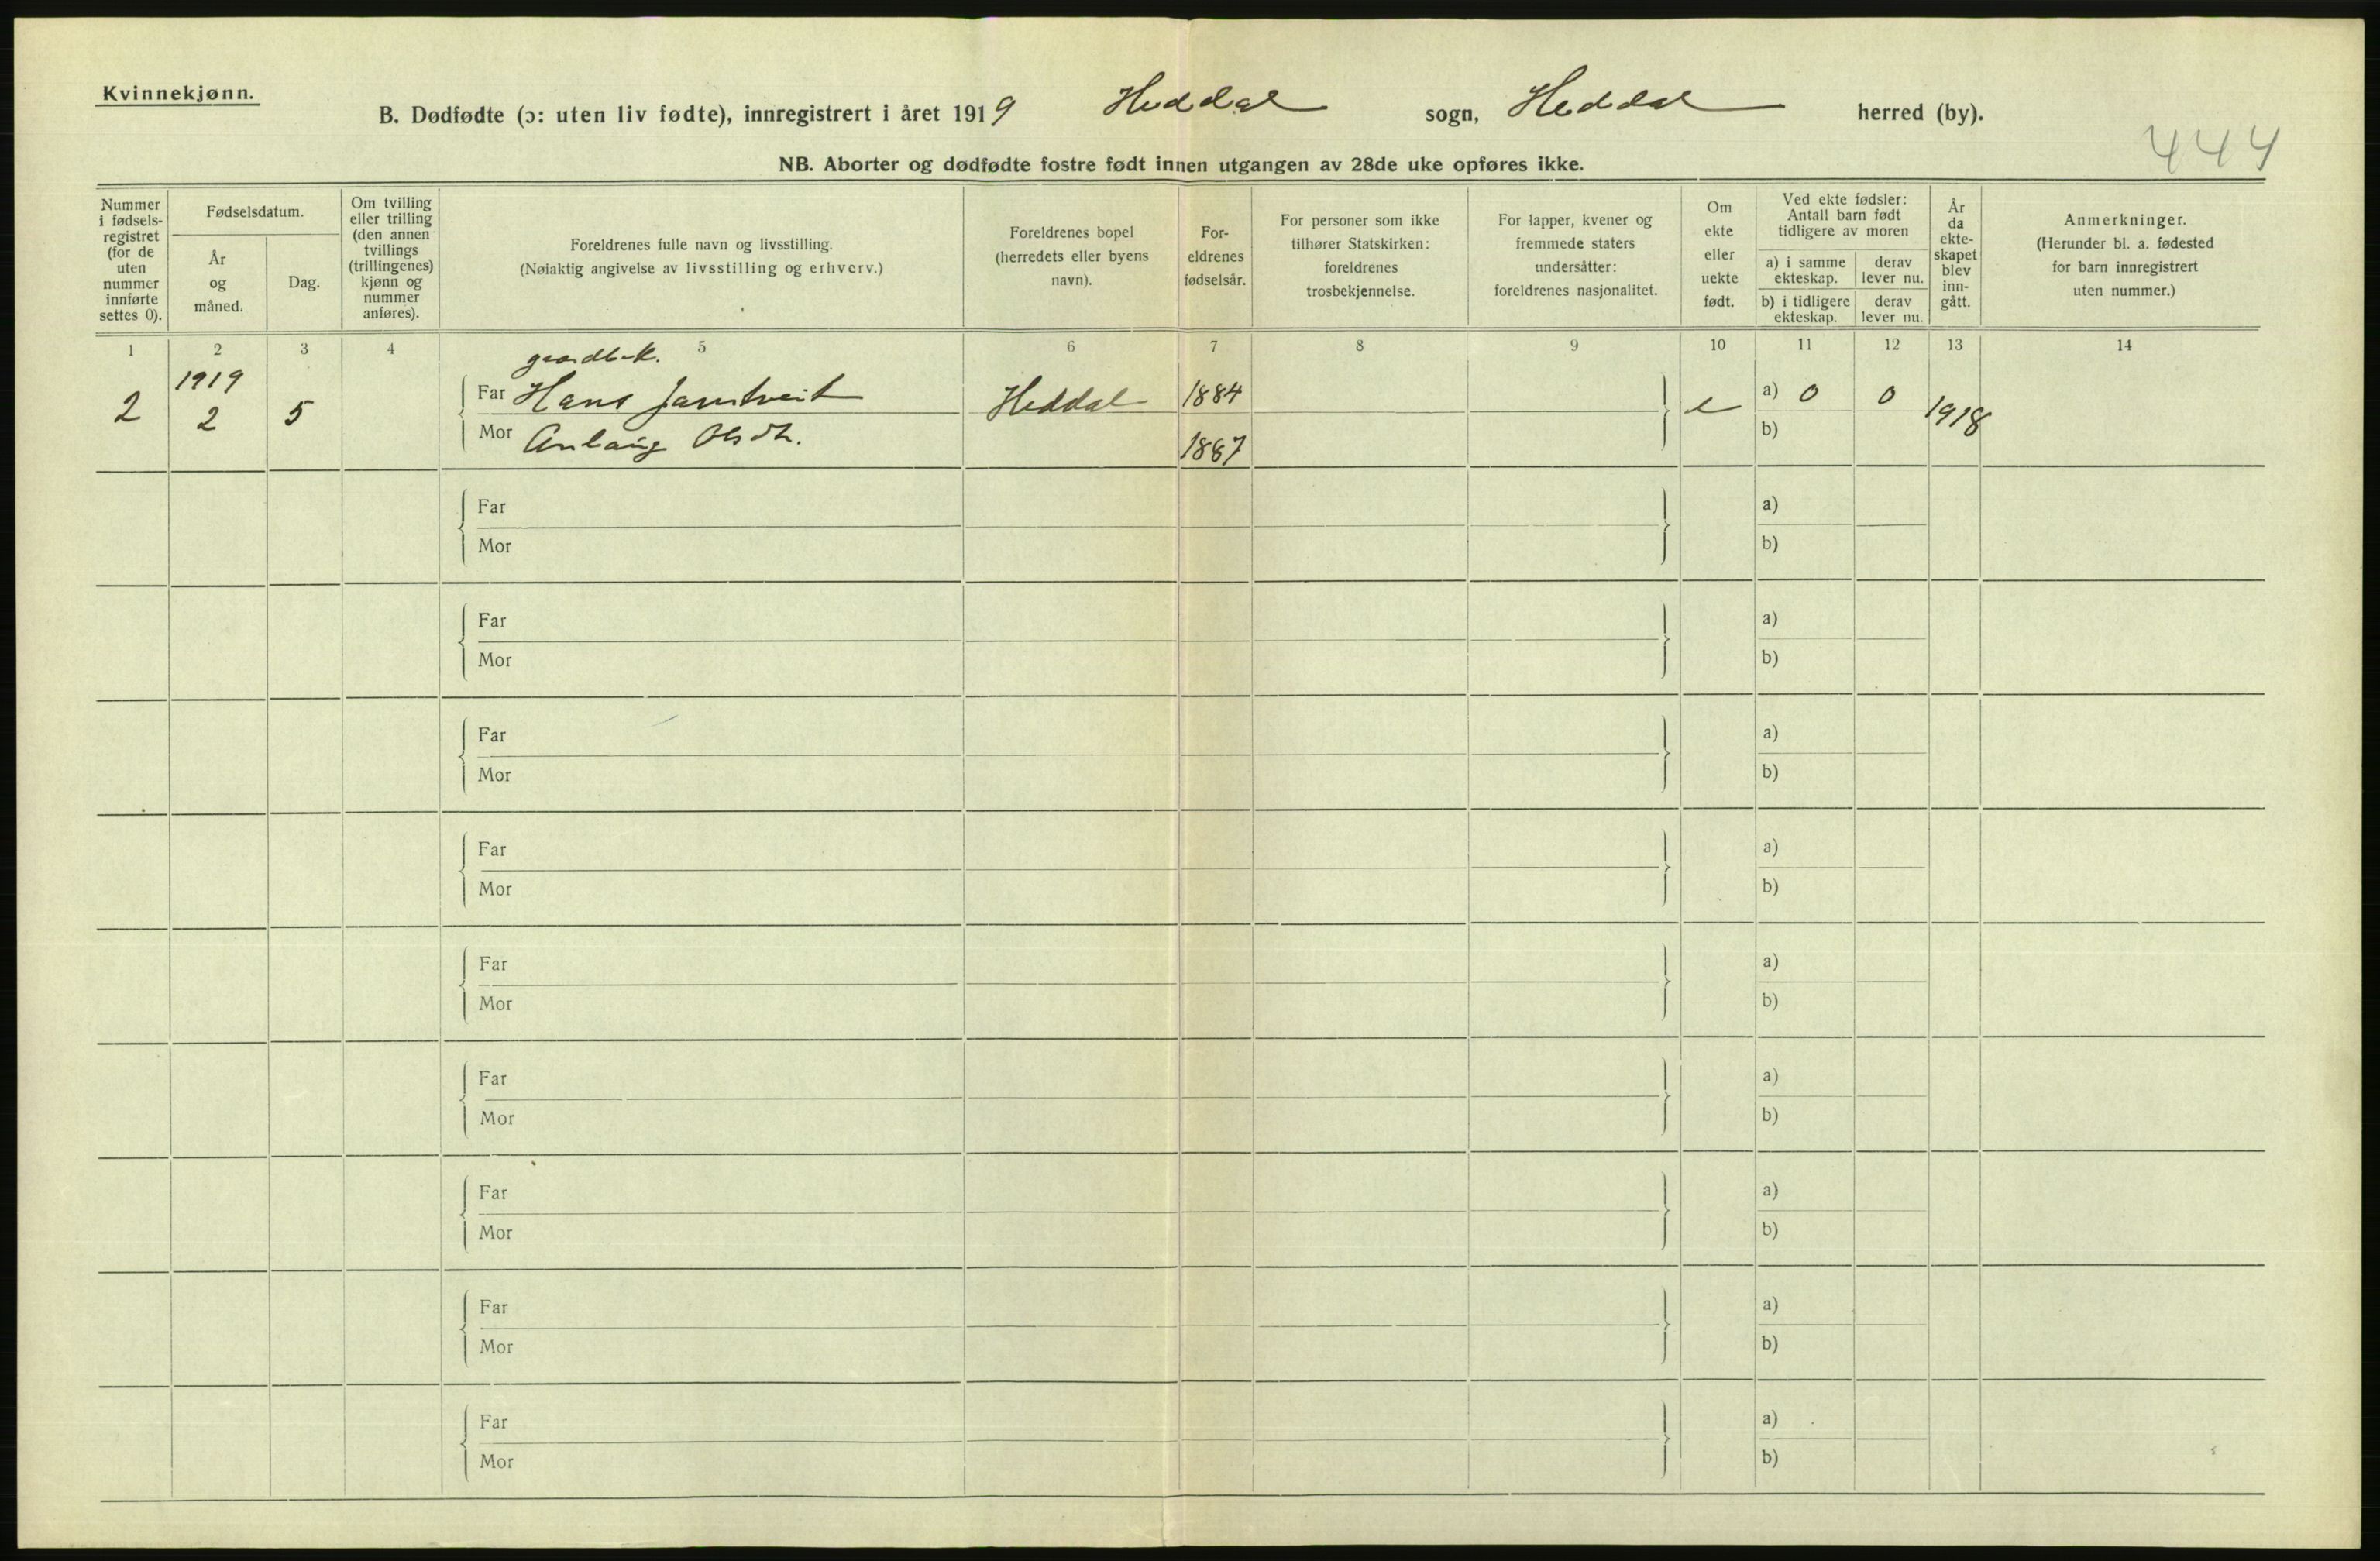 Kvinnekjønn.
B. Dødfødte (ɔ: uten liv fødte), innregistrert i året 1919 Heddal sogn, Heddal herred (by).
444
NB. Aborter og dødfødte fostre født innen utgangen av 28de uke opføres ikke.
Nummer
i fødsels-
registret
(for de
uten
nummer
innførte
settes 0).
Fødselsdatum.
År
og
måned.
Dag.
Om tvilling
eller trilling
(den annen
tvillings
(trillingenes)
kjønn og
nummer
anføres).
Foreldrenes fulle navn og livsstilling.
(Nøiaktig angivelse av livsstilling og erhverv.)
Foreldrenes bopel
(herredets eller byens
navn).
For-
eldrenes
fødselsår.
For personer som ikke
tilhører Statskirken:
foreldrenes
trosbekjennelse.
For lapper, kvener og
fremmede staters
undersåtter:
foreldrenes nasjonalitet.
Om
ekte
eller
uekte
født.
Ved ekte fødsler:
Antall barn født
tidligere av moren
a) i samme
ekteskap.
derav
lever nu.
b) i tidligere
ekteskap.
derav
lever nu.
År
da
ekte-
skapet
blev
inn-
gått.
Anmerkninger.
(Herunder bl. a. fødested
for barn innregistrert
uten nummer.)
1 2 3 4 5 6 7 8 9 10 11 12 13 14
gaardbr.
1919
2 2 5
Far Hans Jamtveit Heddal 1884 e a) 0 0 1918
Mor Anlaug Olsdtr. 1887 b)
Far a)
Mor b)
Far a)
Mor b)
Far a)
Mor b)
Far a)
Mor b)
Far a)
Mor b)
Far a)
Mor b)
Far a)
Mor b)
Far a)
Mor b)
Far a)
Mor b)